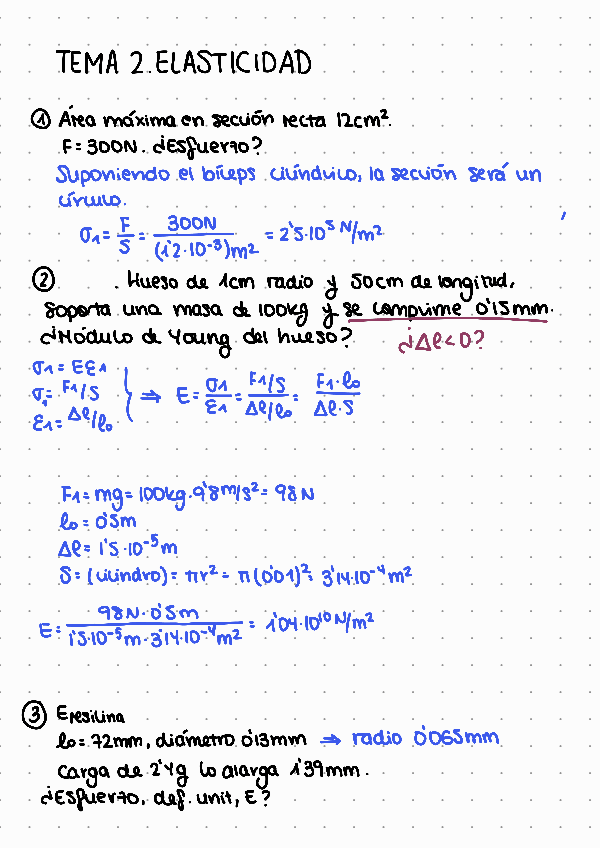 TEMA 2. ELASTICIDAD
① Área máxima en sección recta 12cm².
F = 300N. ¿Esfuerzo?
Suponiendo el bíceps cilíndrico, la sección será un
círculo.
σ₁ = F/S = 300N/(1'2·10⁻³)m² = 2'5·10⁵ N/m²
② . Hueso de 1cm radio y 50cm de longitud,
soporta una masa de 100kg y se comprime 0'15mm.
¿Módulo de Young del hueso? ¿Δl<0?
σ₁ = Eε₁
σ₁ = F₁/S
ε₁ = Δl/l₀
⇒ E = σ₁/ε₁ = F₁/S/Δl/l₀ = F₁·l₀/Δl·S
F₁ = mg = 100kg·9'8m/s² = 98N
l₀ = 0'5m
Δl = 1'5·10⁻⁵m
S = (cilindro) = πr² = π(0'01)² = 3'14·10⁻⁴m²
E = 98N·0'5m/1'5·10⁻⁵m·3'14·10⁻⁴m² = 1'04·10¹⁰N/m²
③ Eresilina
l₀ = 72mm, diámetro 0'13mm ⇒ radio 0'065mm
Carga de 2'4g lo alarga 1'39mm.
¿Esfuerzo, def. unit, E?